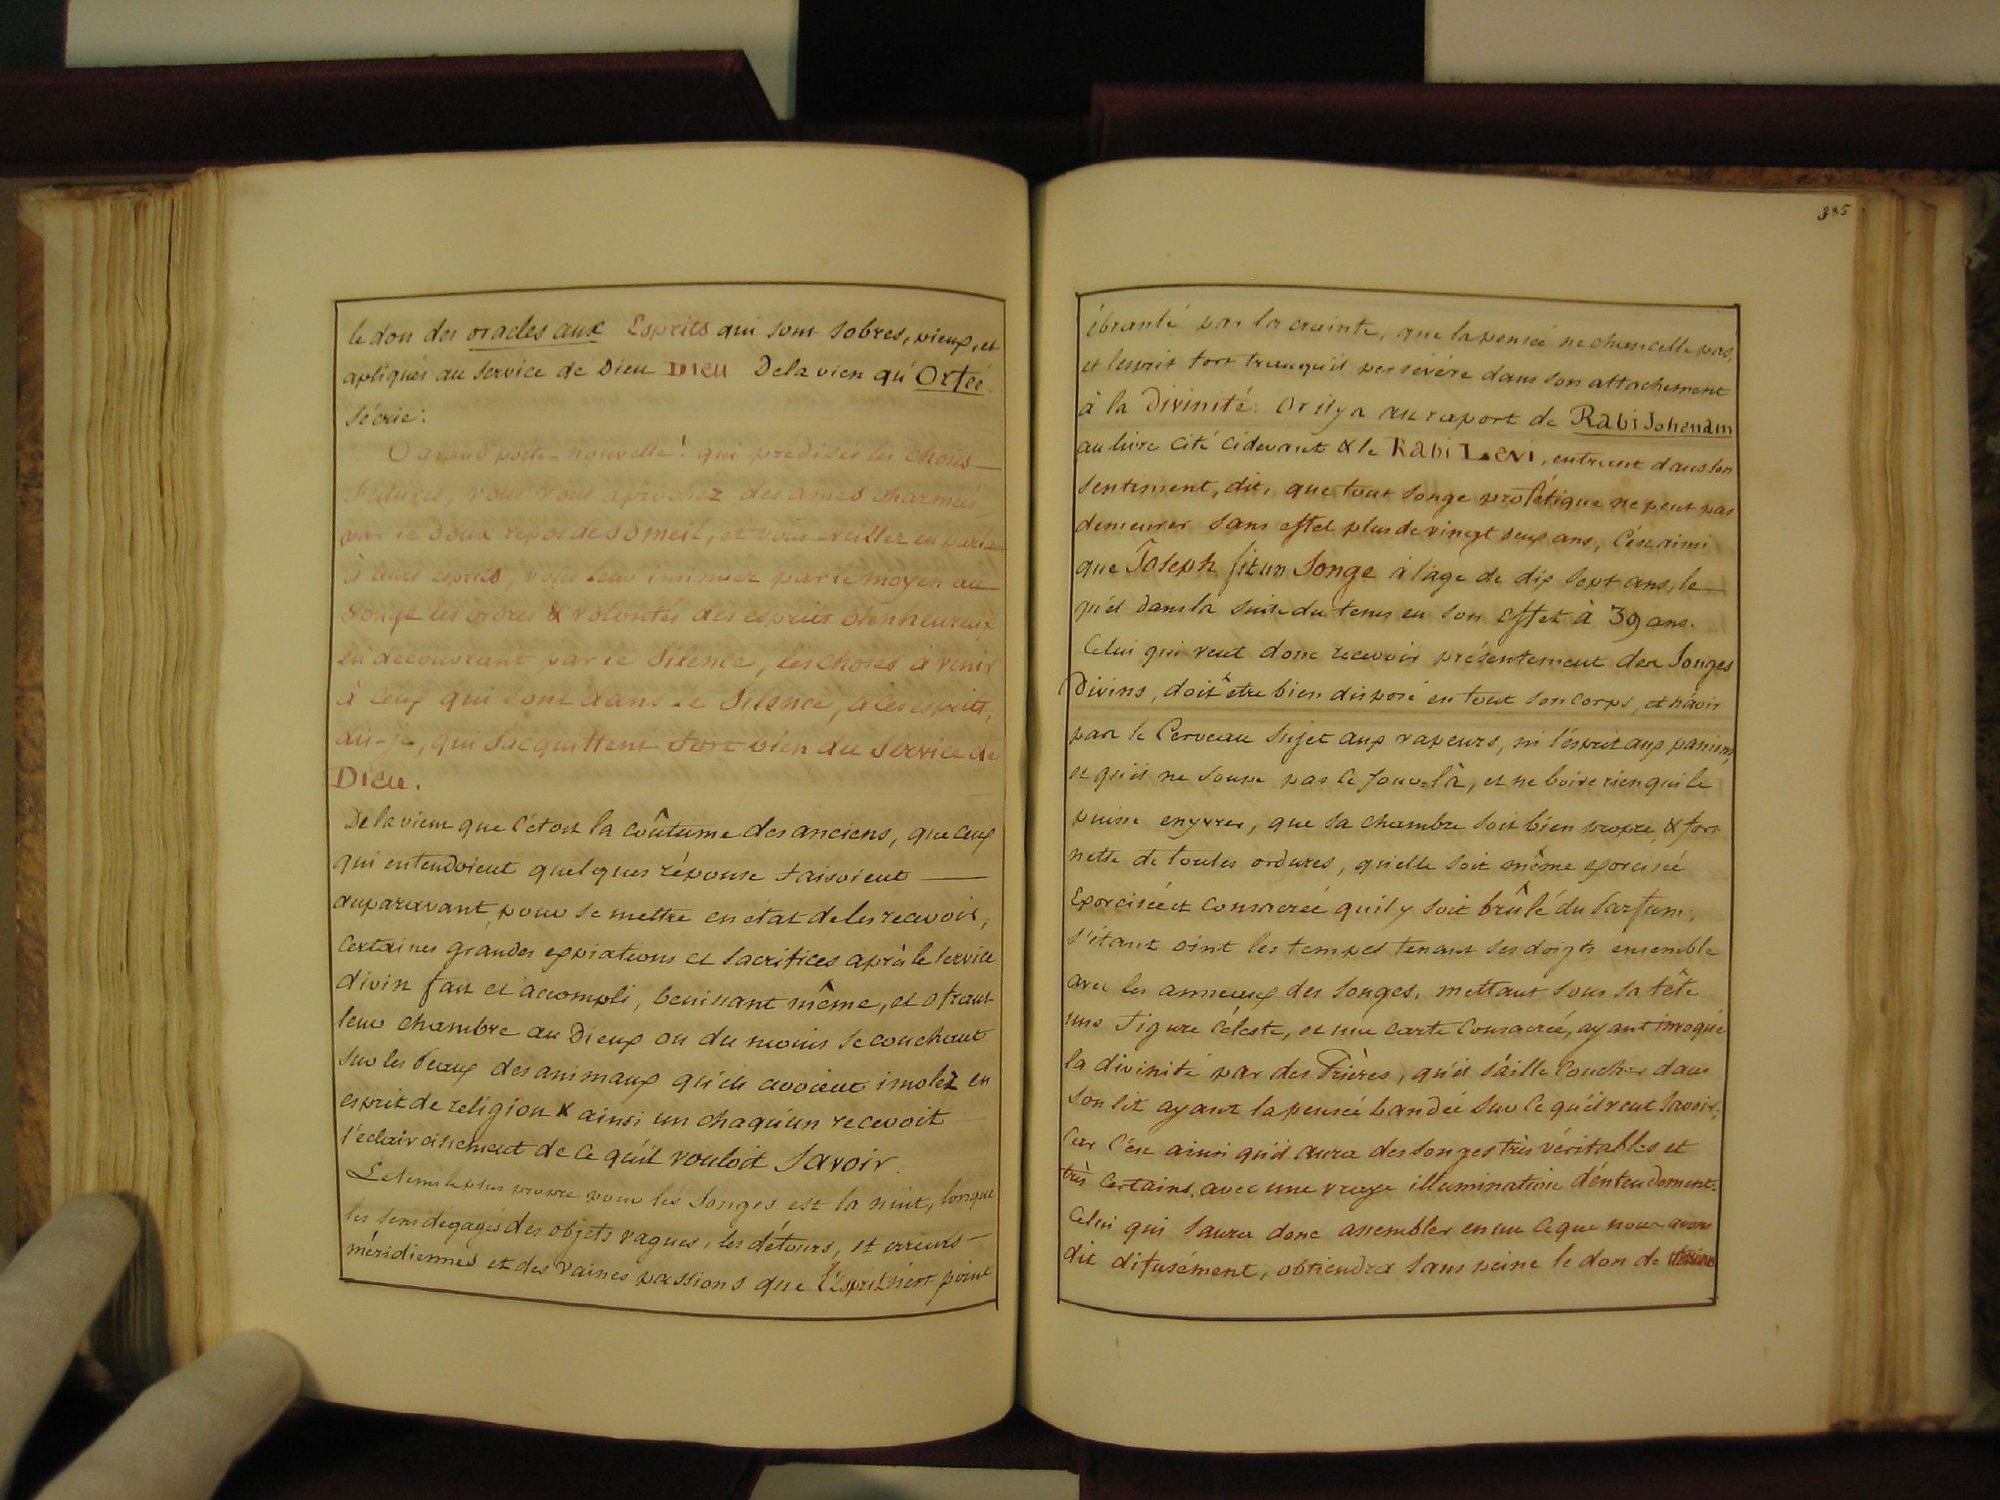 le don des oracles aux Esprits qui sont sobres, pieux, et
apliqués au service de Dieu DIEU Dela vien qu'Orfée
sécrie:
O grand poëte nouvelle! qui predisés les choses
Futures, vous vous aprochez des ames charmées
par le doux repos de Someil, et vous veillez en parlant
à leurs esprits vous leur insinuez par le moyen du
Songe les ordres & volontés des esprits bienheureux
en decouvrant par le Silence, les choses à venir
à ceux qui sont dans le Silence, à les esprits,
dis-je, qui sácquittent fort bien du Service de
Dieu.
De la vient que c'étoit la coûtume des anciens, que ceux
qui entendoient quelques réponse faisoient
auparavant, pour se mettre en état de les recevoir,
certaines grandes expiations et sacrifices après le service
divin fait et accompli, benissant même, et ofrant
leur chambre au Dieux ou du moins se couchant
sur les peaux des animaux qu'ils avoient imolez en
esprit de religion & ainsi un chaqu'un recevoit
l'éclaircissement de ce qu'il vouloit Savoir.
Le tems le plus propre pour les Songes est la nuit, lorsque
les sens dégagés des objets vagues, les détours, et erreurs
méridiennes et des vaines passions que l'Esprit n'est point
385
ébranlé par la crainte, que la pensée ne chancelle pas,
et l'esprit fort tranquil persévére dans son attachement
à la Divinité. Or il y a au raport de Rabi Johenam
au livre cité cidevant & le Rabi Levi, entrant dans son
sentiment, dit, que tout songe profétique ne peut pas
demeurer sans effet plus de vingt deux ans, C'est ainsi
que Joseph fit un Songe à l'age de dix sept ans, le
qu'el dans la suite du tems eu son effet à 39 ans.
Celui qui veut donc recevoir présentement des Songes
Divins, doit être bien disposé en tout son corps, et n'avoir
pas le Cerveau sujet aux vapeurs, ni l'esprit aux passions,
et qu'il ne soupe pas ce jour-là, et ne boire rien qui le
puisse enyvrer, que sa chambre soit bien propre & fort
nette de toutes ordures, qu'elle soit même exorcisée
Exorcisée et consacrée qu'il y soit brûlé du Parfum,
s'étant oint les tempes tenant ses doigts ensemble
avec les anneaux des songes, mettant sous sa tête
une Figure Céleste, et une carte Consacrée, ayant invoqué
la divinité par des Prières, qu'il s'aille Coucher dans
son lit ayant la pensée bandée sur ce qu'il veut savoir,
Car c'est ainsi qu'il aura des songes très véritables et
très certains, avec une vraye illumination d'entendement.
Celui qui saura donc assembler en un ce que nous avons
dit difusément, obtiendra sans peine le don de